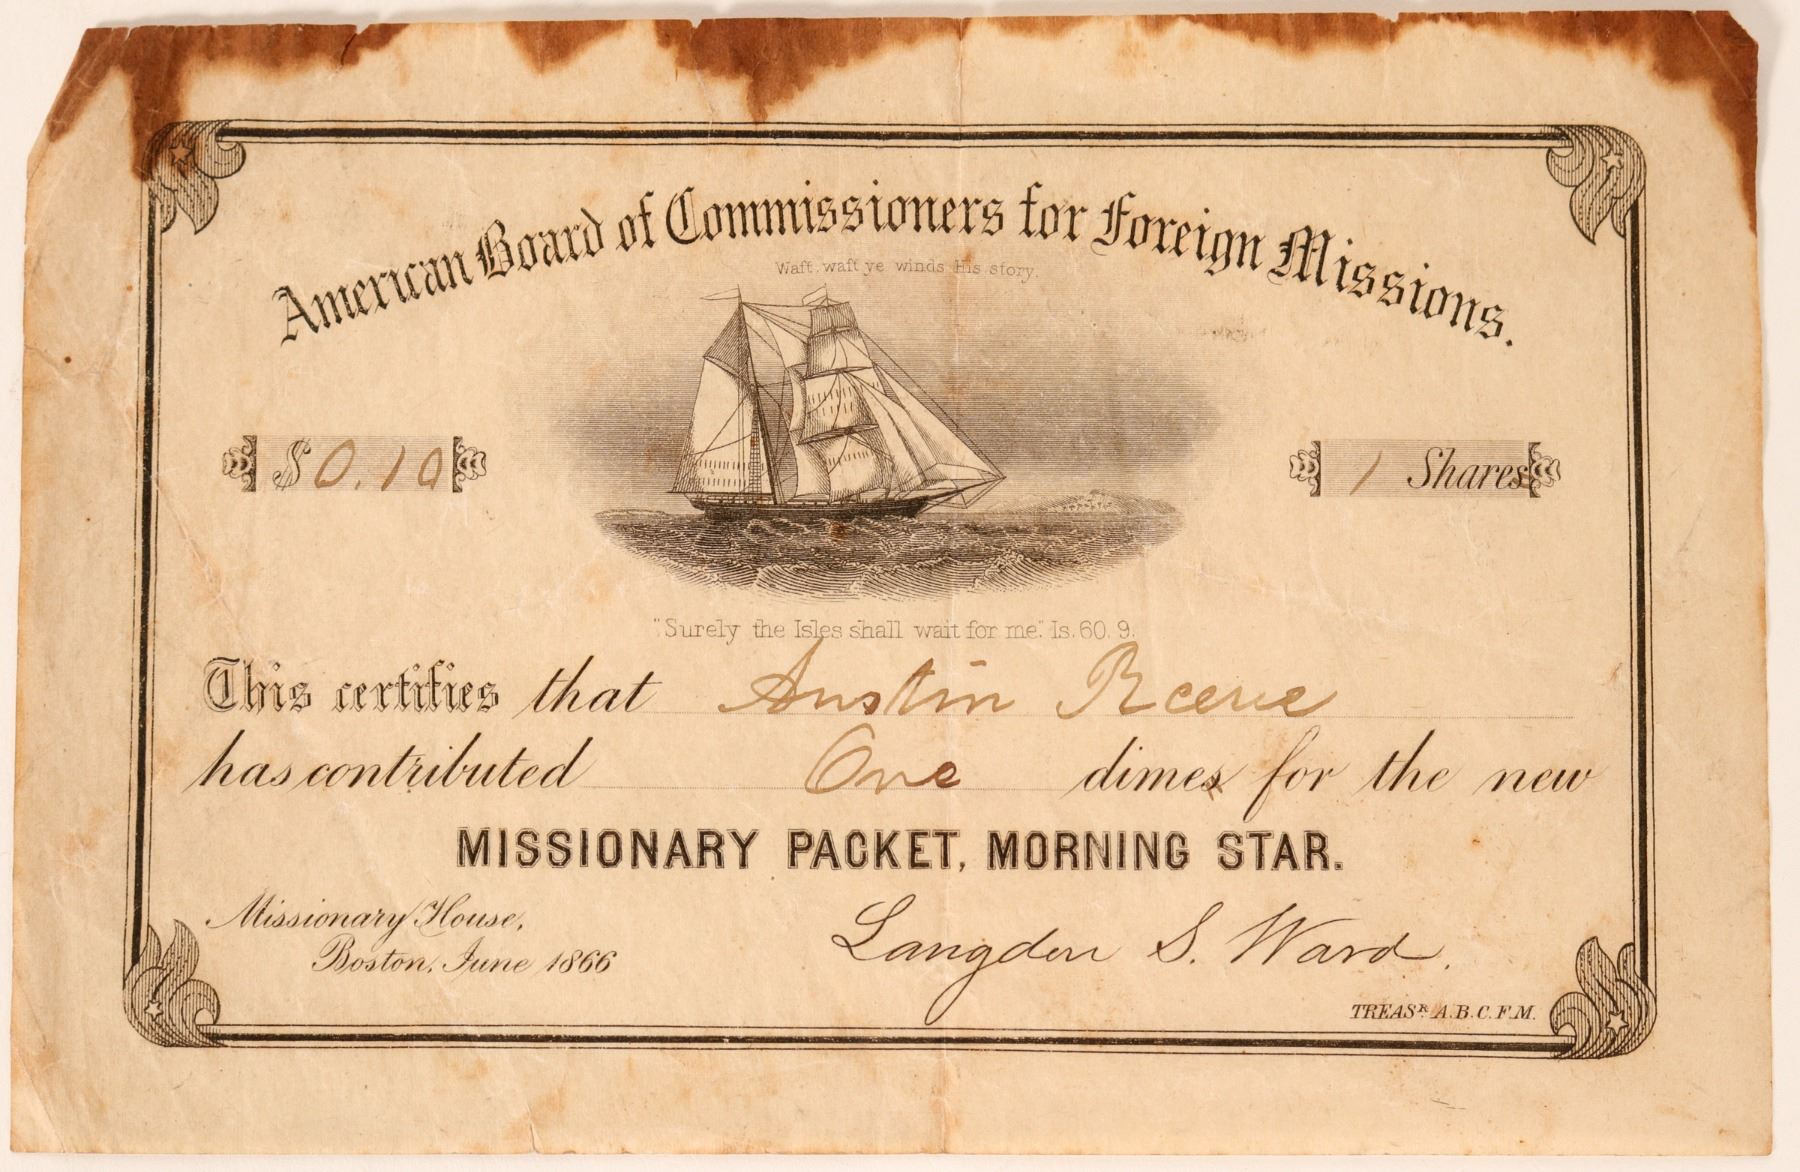 American Board of Commissioners for Foreign Missions.
Waft, waft ye winds His story.
$0.10
1 Shares
"Surely the Isles shall wait for me." Is. 60. 9.
This certifies that Austin Reeve
has contributed One dimes for the new
MISSIONARY PACKET, MORNING STAR.
Missionary House,
Boston, June 1866
Langdon S. Ward.
TREASR. A.B.C.F.M.